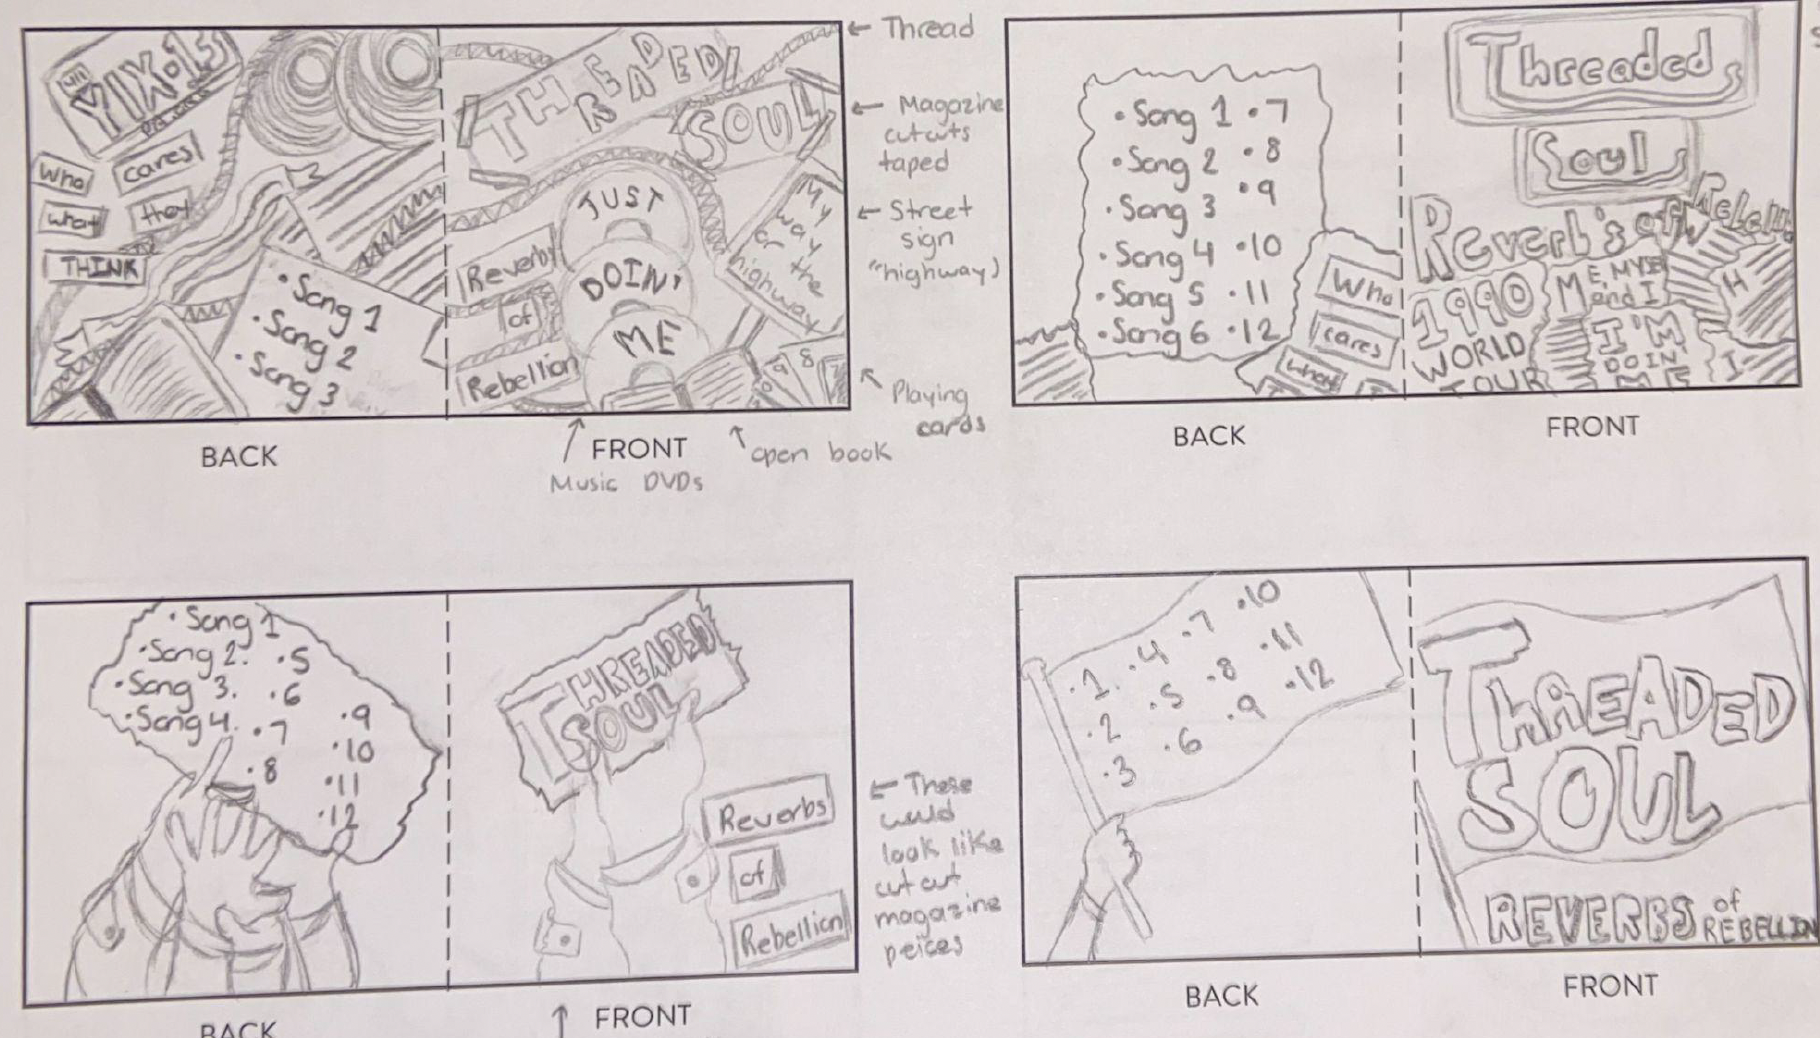 MIX.1s
who
cares
what
they
THINK
• Song 1
• Song 2
• Song 3
THREADED
SOUL
JUST
DOIN'
ME
Reverbs
of
Rebellion
My
way
or the
highway
9
8
7
← Thread
← Magazine
cutouts
taped
← Street
sign
"highway)
Playing
cards
open book
Music DVDs
BACK
FRONT
• Song 1 • 7
• Song 2 • 8
• Song 3 • 9
• Song 4 • 10
• Song 5 • 11
• Song 6 • 12
Who
cares
what
Threaded
Soul
Reverb's of
1990
WORLD
TOUR
ME, MYSE
and I
I'M
DOIN'
ME
H
I
BACK
FRONT
• Song 1
• Song 2. • 5
• Song 3. • 6
• Song 4. • 7
• 8
• 9
• 10
• 11
• 12
THREADED
SOUL
Reverbs
of
Rebellion
← These
would
look like
cut out
magazine
peices
BACK
FRONT
• 1 • 4 • 7 • 10
• 2 • 5 • 8 • 11
• 3 • 6 • 9 • 12
THREADED
SOUL
REVERBS of REBELLION
BACK
FRONT